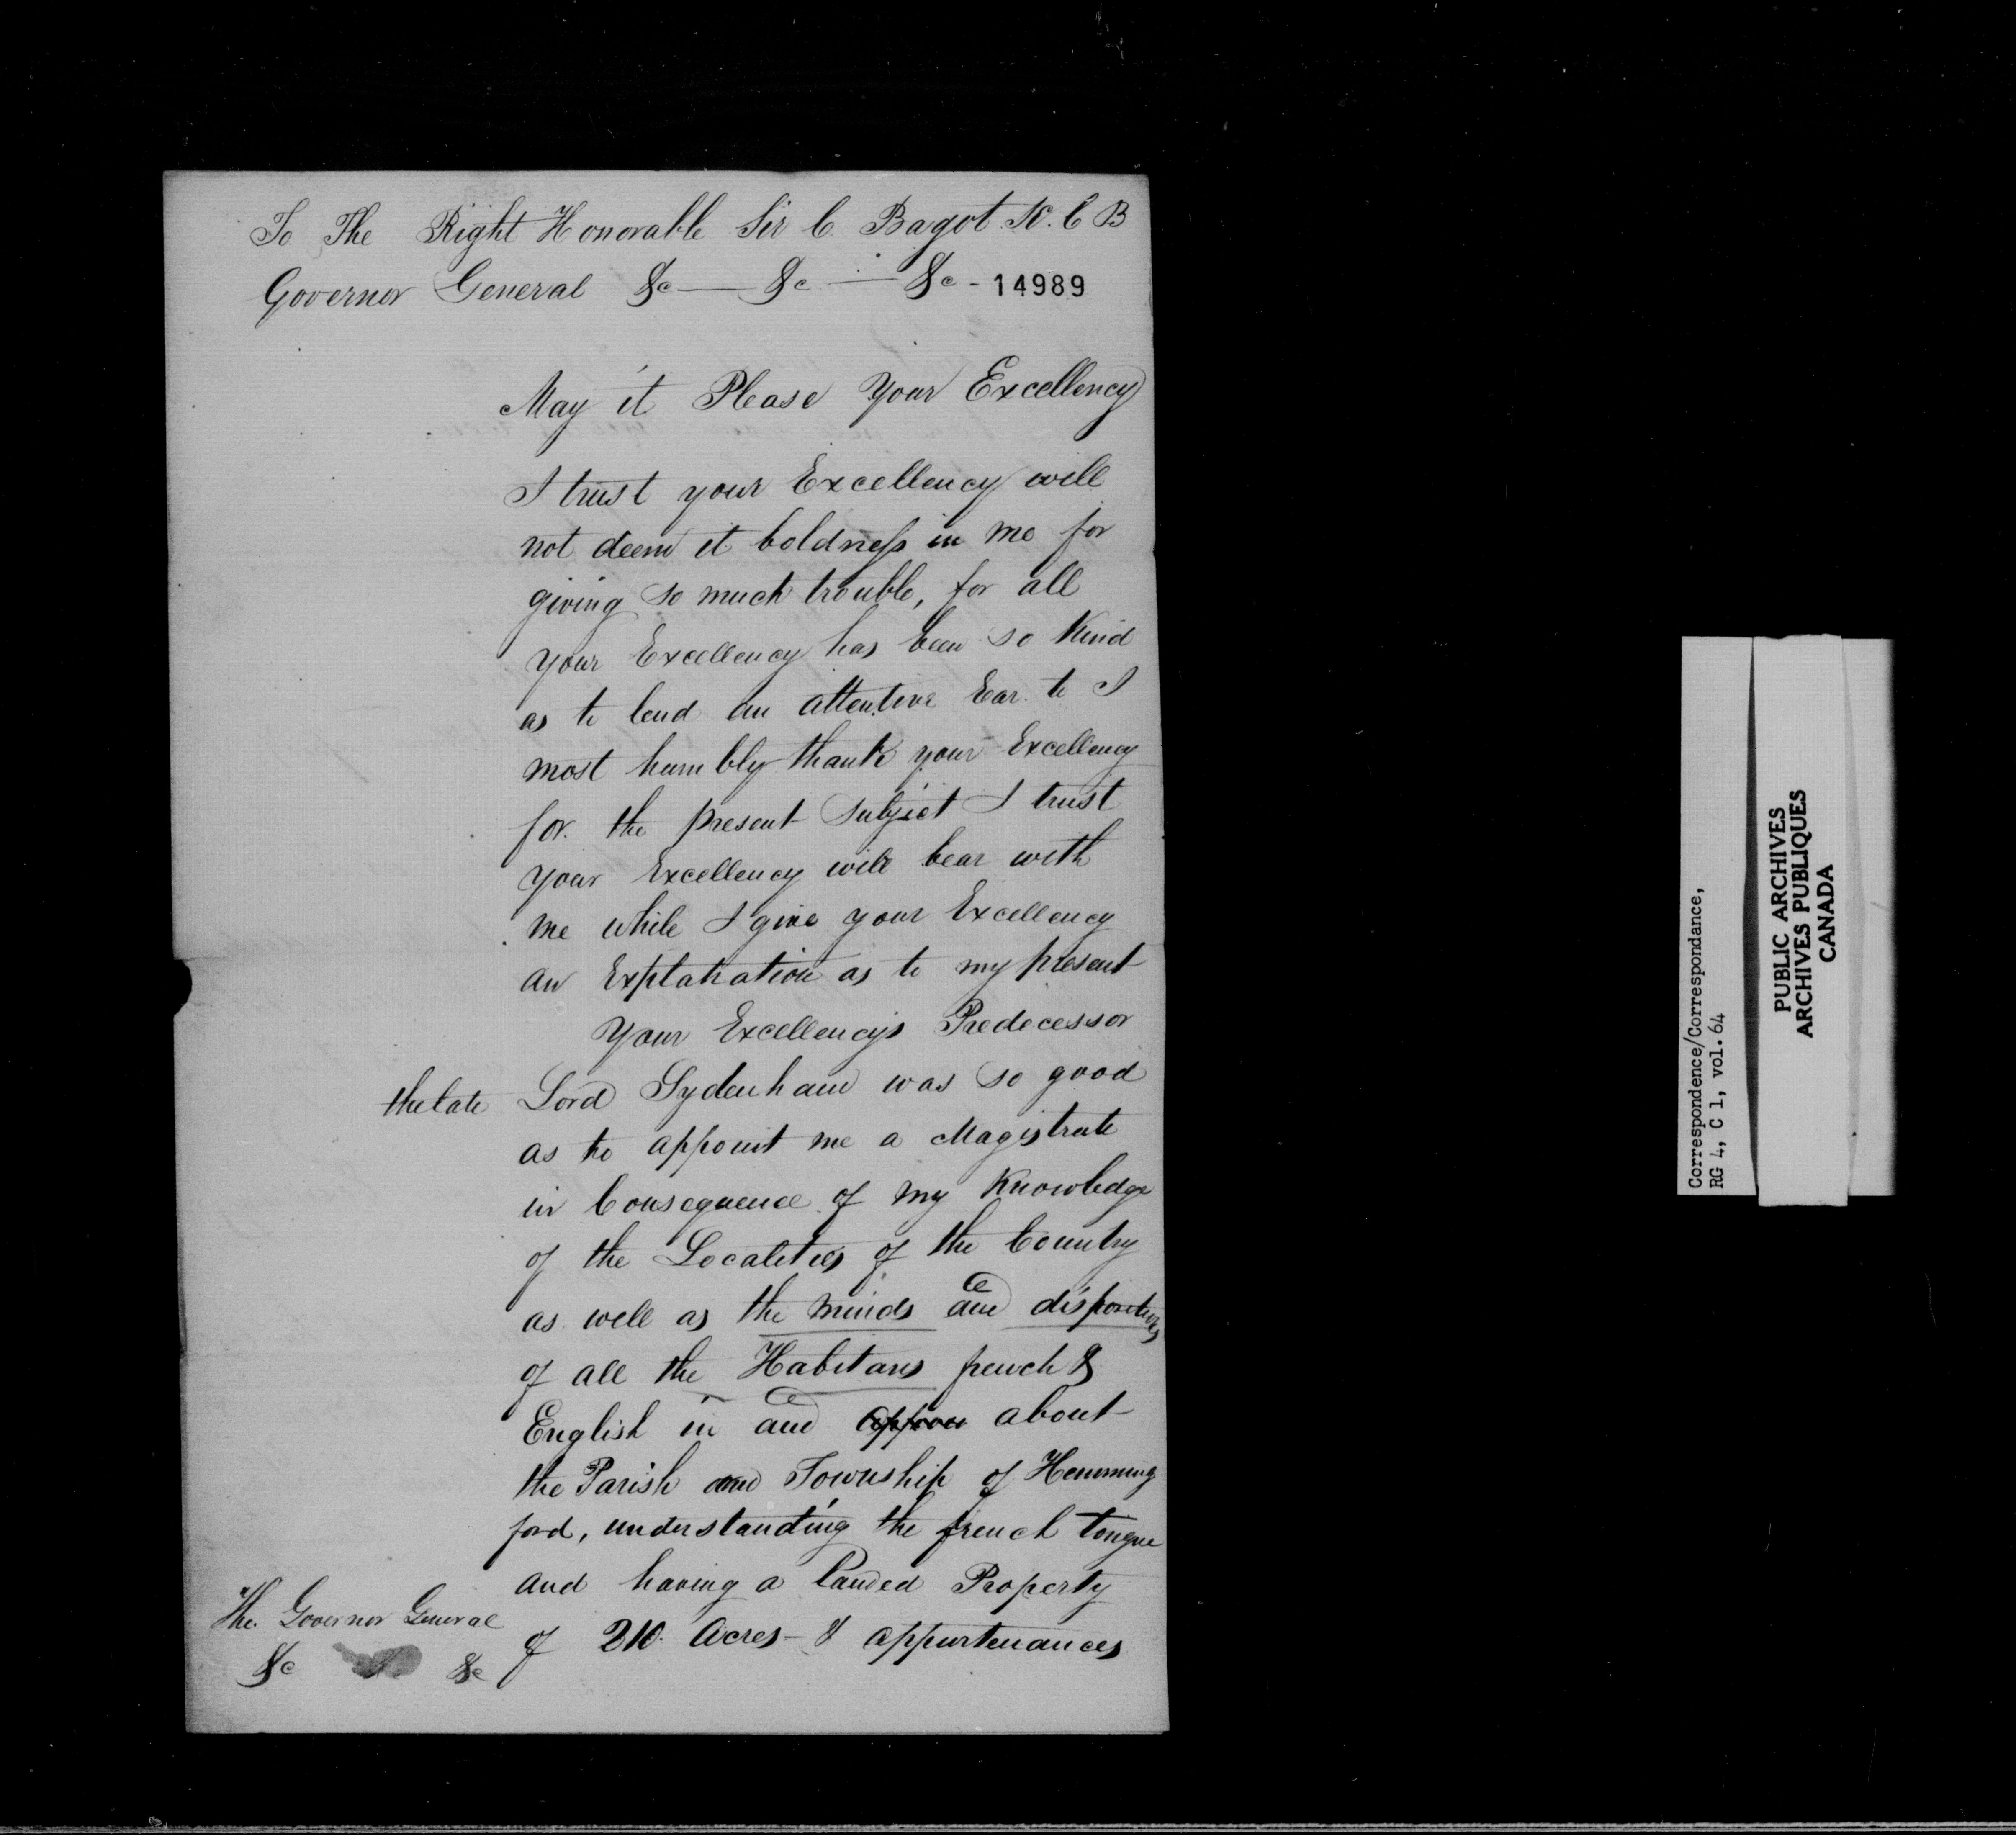 To The Right Honorable Sir C. Bagot K. C B
Governor General &c — &c — &c - 14989
May it Please Your Excellency
I trust your Excellency will
not deem it boldness in me for
giving so much trouble, for all
your Excellency has been so Kind
as to lend an attentive Ear to I
most humbly thank your Excellency
for the present Subject I trust
your Excellency will bear with
me while I give your Excellency
an Explanation as to my present
Your Excellency's Predecessor
the late Lord Sydenham was so good
as to appoint me a Magistrate
in Consequence of my Knowledge
of the Localities of the Country
as well as the minds and dispositions
of all the Habitans french &
English in and appou about
the Parish and Township of Hemming
ford, understanding the french tongue
and having a landed Property
of 210 Acres - & appurtenances
The Governor General
&c &c
Correspondence/Correspondance,
RG 4, C 1, vol. 64
PUBLIC ARCHIVES
ARCHIVES PUBLIQUES
CANADA